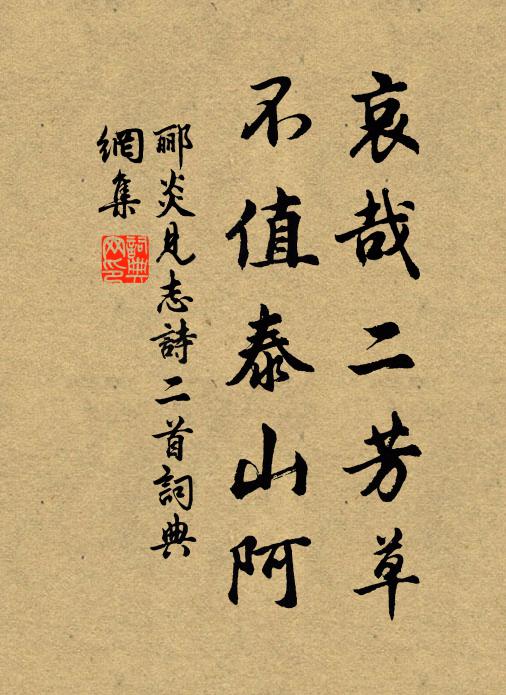 哀哉二芳草
不值泰山阿
郦炎見志詩二首詞典
網集
詞典
网印